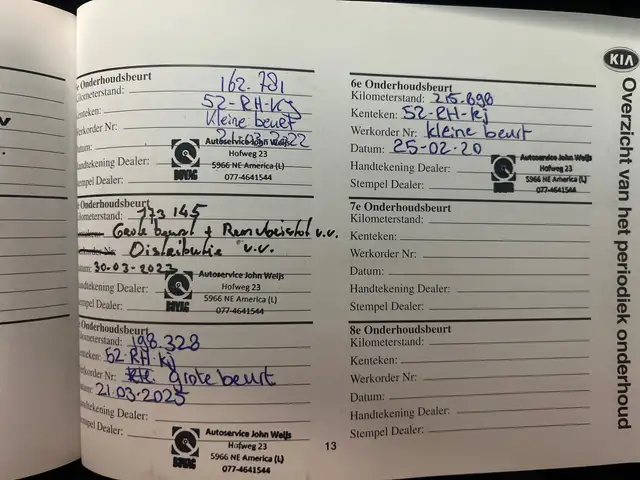 Onderhoudsbeurt
Kilometerstand: 162.781
Kenteken: 52-RH-kj
Werkorder Nr: kleine beurt
Datum: 21-03-2022
Handtekening Dealer:
Stempel Dealer:
Autoservice John Weijs
Hofweg 23
5966 NE America (L)
077-4641544
BOVAG
Onderhoudsbeurt
Kilometerstand: 173145
Grote beurt + Remvloeistof v.v.
Distributie v.v.
Datum: 30-03-2023
Handtekening Dealer:
Stempel Dealer:
Autoservice John Weijs
Hofweg 23
5966 NE America (L)
077-4641544
BOVAG
Onderhoudsbeurt
Kilometerstand: 198.328
Kenteken: 52-RH-kj
Werkorder Nr: grote beurt
Datum: 21.03-2025
Handtekening Dealer:
Stempel Dealer:
Autoservice John Weijs
Hofweg 23
5966 NE America (L)
077-4641544
BOVAG
13
6e Onderhoudsbeurt
Kilometerstand: 215.898
Kenteken: 52-RH-kj
Werkorder Nr: kleine beurt
Datum: 25-02-20
Handtekening Dealer:
Stempel Dealer:
Autoservice John Weijs
Hofweg 23
5966 NE America (L)
077-4641544
7e Onderhoudsbeurt
Kilometerstand:
Kenteken:
Werkorder Nr:
Datum:
Handtekening Dealer:
Stempel Dealer:
8e Onderhoudsbeurt
Kilometerstand:
Kenteken:
Werkorder Nr:
Datum:
Handtekening Dealer:
Stempel Dealer:
KIA
Overzicht van het periodiek onderhoud